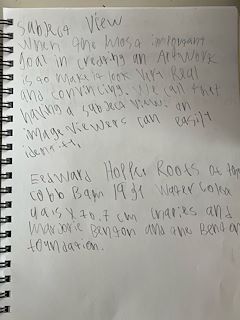 Subject View
When the most important
goal in creating an Artwork
is to make it look very Real
and convincing. We call that
having a subject view. an
image viewers can easily
identify.
Edward Hopper Roofs of the
Cobb Barn 1931 Water Color
and
Marjorie Benton and the Benton
foundation.